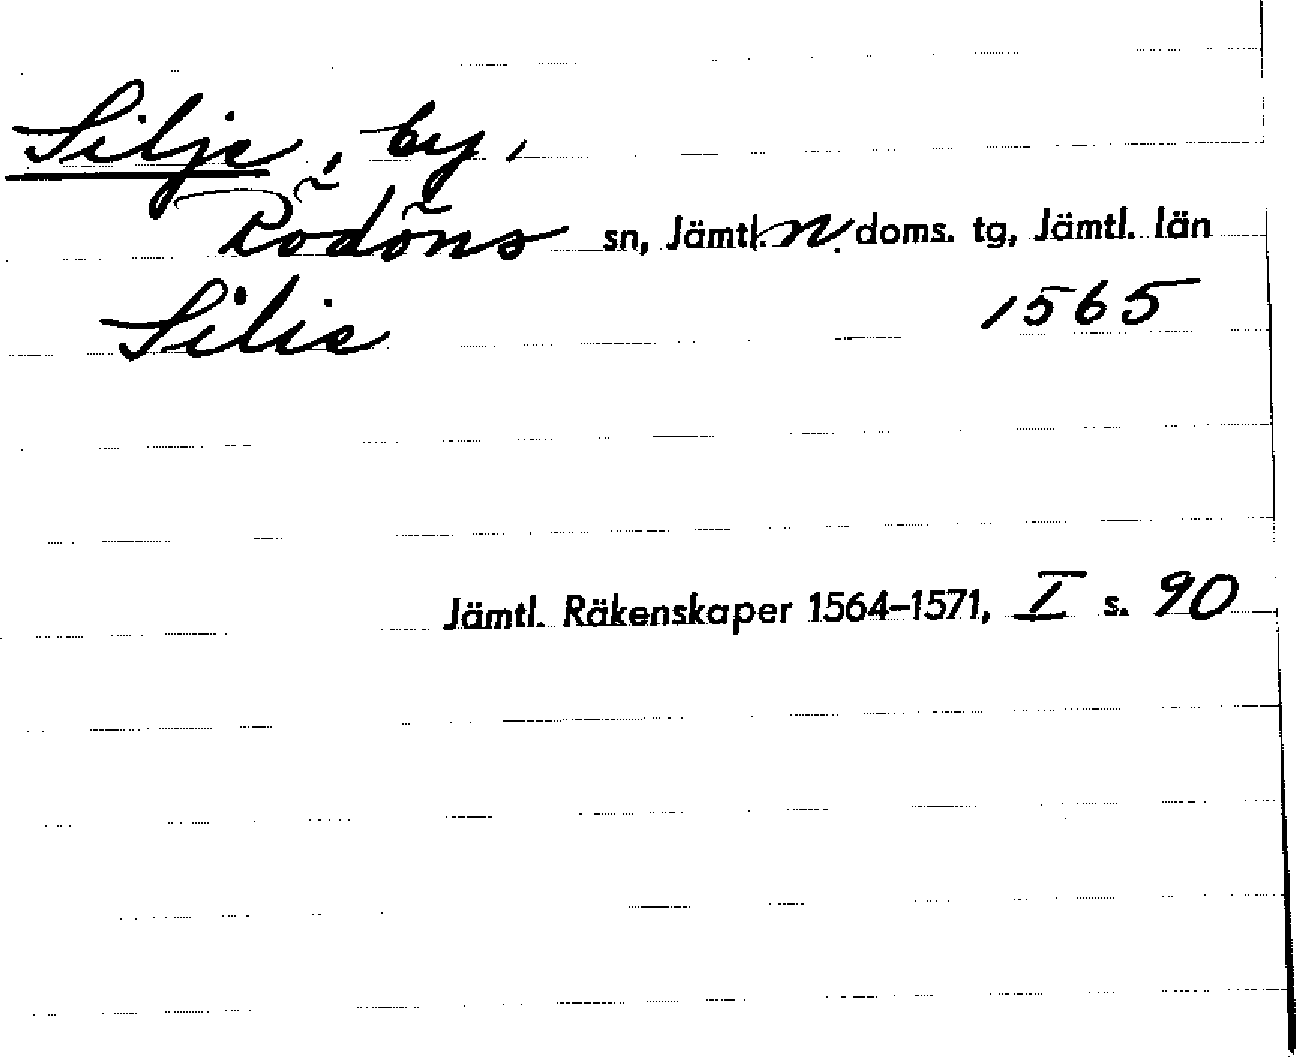 Silje, by,
Rödöns sn, Jämtl. n. doms. tg, Jämtl. län
Silie 1565
Jämtl. Räkenskaper 1564–1571, I s. 90